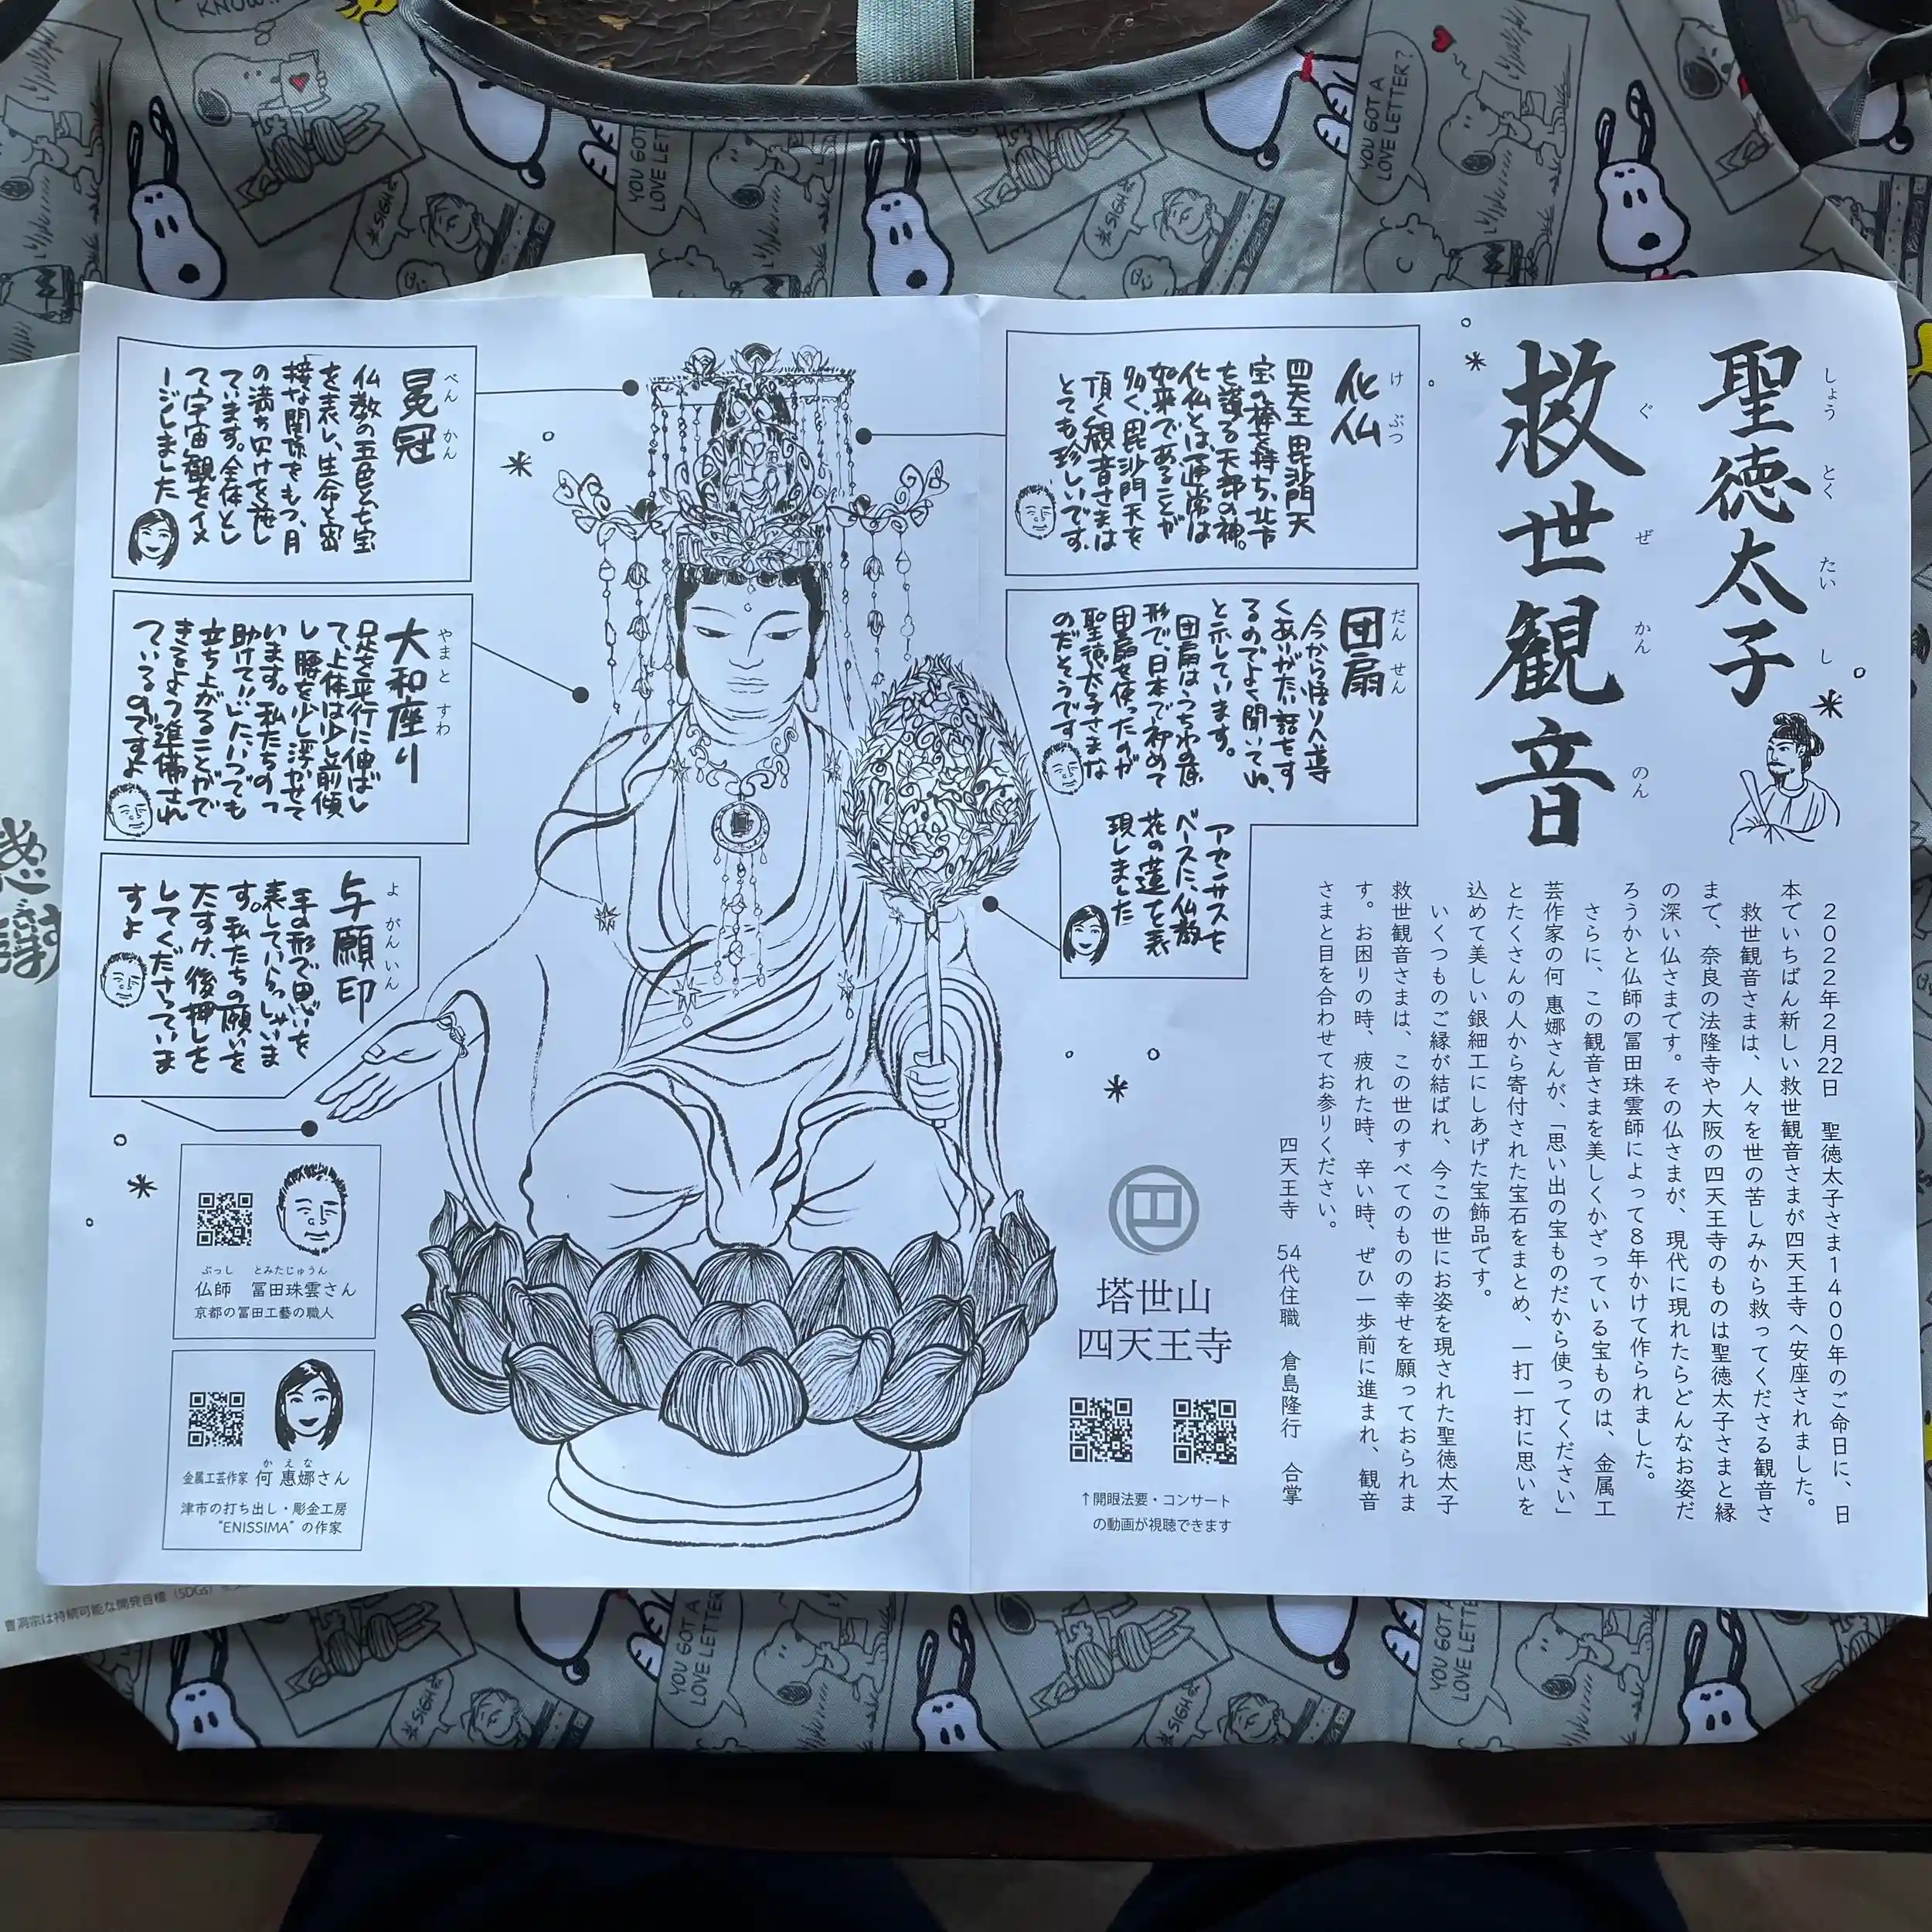 聖徳太子
しょうとくたいし
救世観音
ぐぜかんのん
2022年2月22日 聖徳太子さま1400年のご命日に、日
本でいちばん新しい救世観音さまが四天王寺へ安座されました。
救世観音さまは、人々を世の苦しみから救ってくださる観音さ
まで、奈良の法隆寺や大阪の四天王寺のものは聖徳太子さまと縁
の深い仏さまです。その仏さまが、現代に現れたらどんなお姿だ
ろうかと仏師の冨田珠雲師によって8年かけて作られました。
さらに、この観音さまを美しくかざっている宝ものは、金属工
芸作家の何 惠娜さんが、「思い出の宝ものだから使ってください」
とたくさんの人から寄付された宝石をまとめ、一打一打に思いを
込めて美しい銀細工にしあげた宝飾品です。
いくつものご縁が結ばれ、今この世にお姿を現された聖徳太子
救世観音さまは、この世のすべてのものの幸せを願っておられま
す。お困りの時、疲れた時、辛い時、ぜひ一歩前に進まれ、観音
さまと目を合わせてお参りください。
四天王寺 54代住職 倉島隆行 合掌
化仏
けぶつ
四天王 毘沙門天
宝の棒を持ち、北方
を護る天部の神。
化仏とは通常は
如来であることが
多く、毘沙門天を
頂く観音さまは
とても珍しいです。
団扇
だんせん
今から悟りへ導
くありがたい話をす
るのでよく聞いてね、
と示しています。
団扇はうちわの原
形で、日本で初めて
団扇を使ったのが
聖徳太子さまな
のだそうです
アカンサスを
ベースに、仏教
花の蓮を表
現しました
冕冠
べんかん
仏教の五色と七宝
を表し、生命と密
接な関係をもつ、月
の満ち欠けを施し
ています。全体とし
て宇宙観をイメ
ージしました
大和座り
やまとすわ
足を平行に伸ばし
て、上体は少し前傾
し腰を少し浮かせて
います。私たちのっ
助けていにいつでも
立ち上がることがで
きるよう準備され
ているのですよ
与願印
よがんいん
手の形で思いを
表していらっしゃいま
す。私たちの願いを
たすけ、後押しを
してくださっていま
すよ
ぶっし とみたじゅうん
仏師 冨田珠雲さん
京都の冨田工藝の職人
かえな
金属工芸作家 何 惠娜さん
津市の打ち出し・彫金工房
“ENISSIMA” の作家
塔世山
四天王寺
↑開眼法要・コンサート
の動画が視聴できます
曹洞宗は持続可能な開発目標（SDGs）
KNOW!!
YOU GOT A
LOVE LETTER?
YOU GOT
LOVE LET
*SIGH*
YOU GOT A
LOVE LETTE
*SIGH*
YOU GOT A
LOVE LETTE
*SIGH*